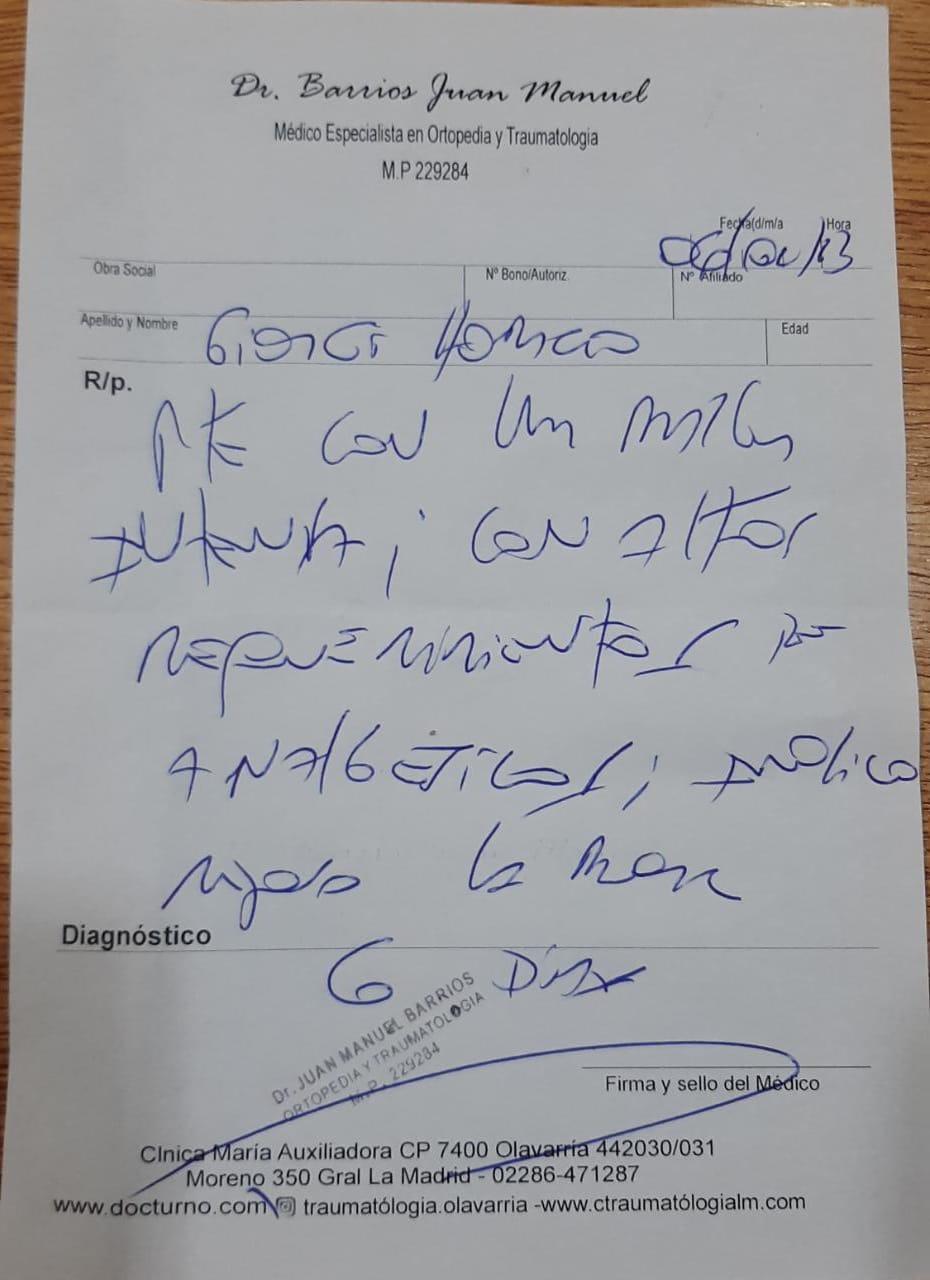 Dr. Barrios Juan Manuel
Médico Especialista en Ortopedia y Traumatologia
M.P 229284
Fecha(d/m/a )Hora
Obra Social Nº Bono/Autoriz. Nº Afiliado
Apellido y Nombre Edad
R/p.
Pte con un
intensa, con altos
requerimientos
analgéticos, indico
6 Dias
Diagnóstico
Dr. JUAN MANUEL BARRIOS
ORTOPEDIA Y TRAUMATOLOGIA
M.P. 229284
Firma y sello del Médico
Clnica María Auxiliadora CP 7400 Olavarría 442030/031
Moreno 350 Gral La Madrid - 02286-471287
www.docturno.com traumatólogia.olavarria -www.ctraumatólogialm.com